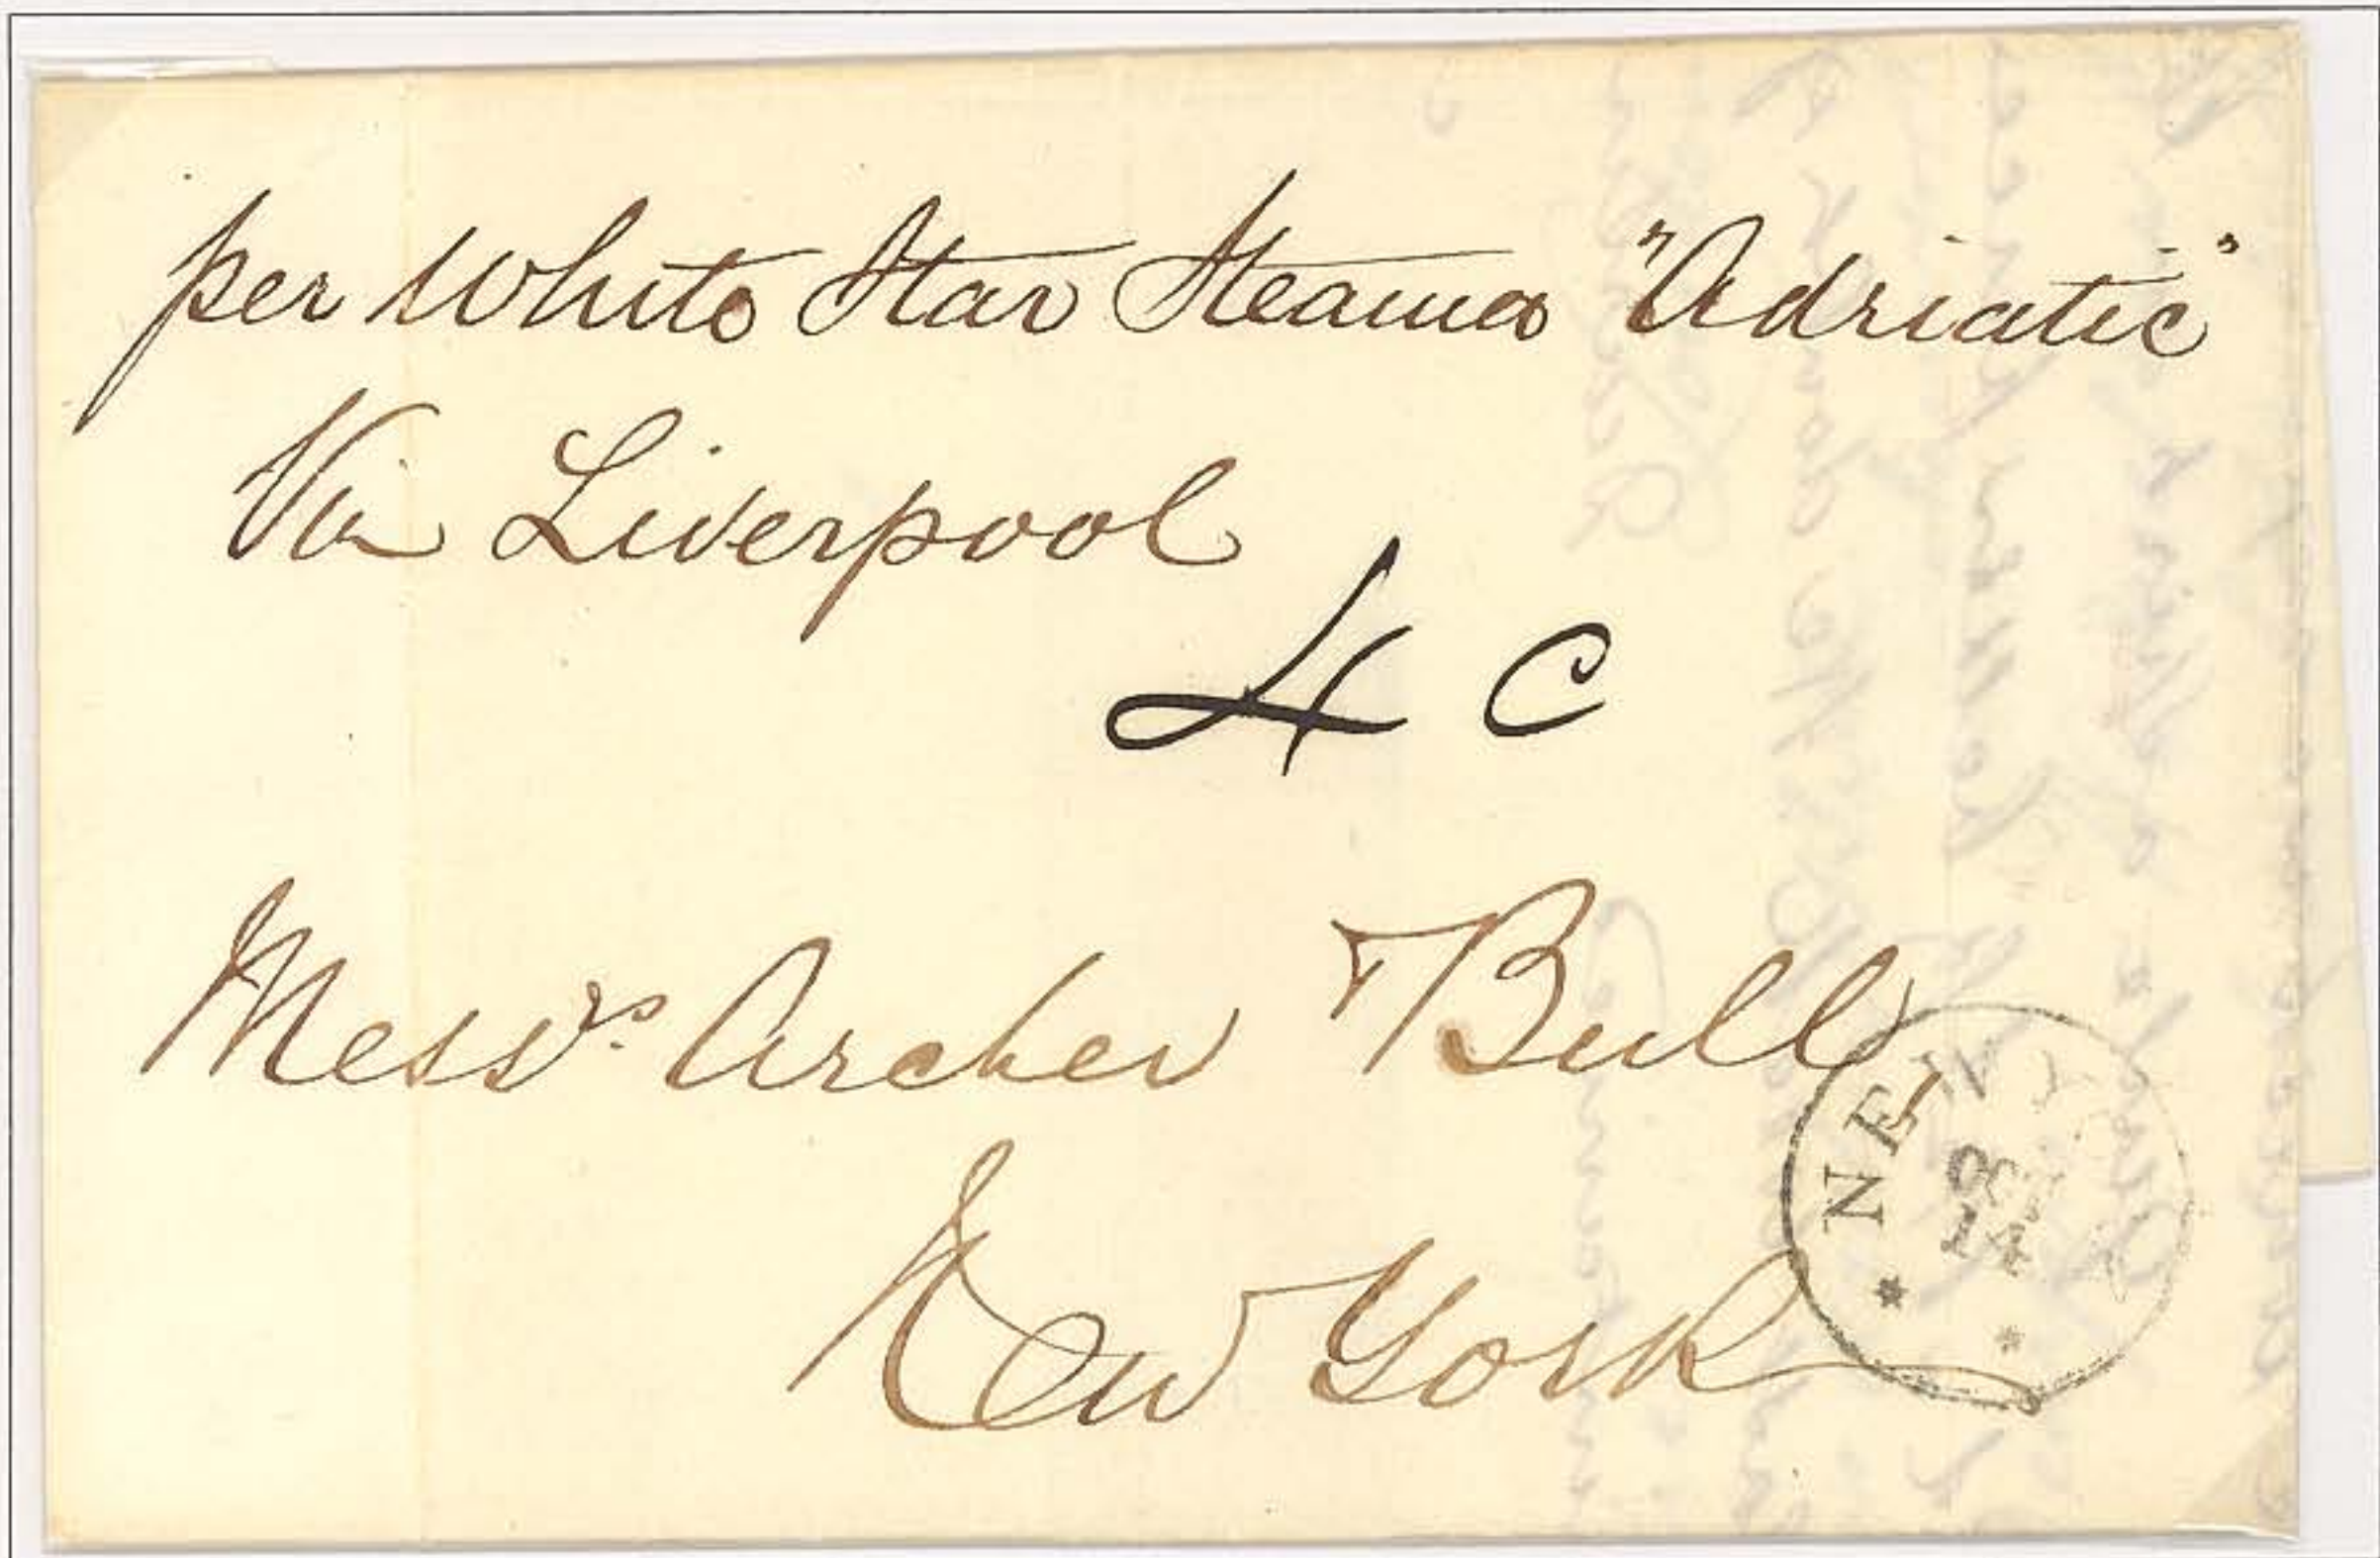 per White Star Steamer "Adriatic"
Via Liverpool
4 C
Messrs. Archer & Bull
New York
NEW Y
OCT
14